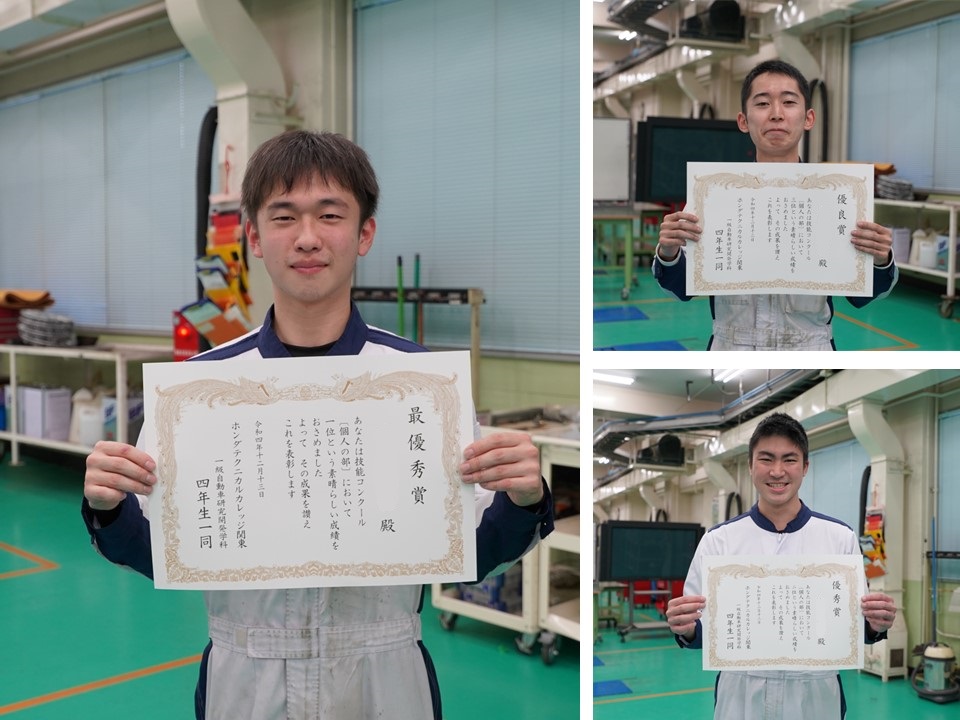 最優秀賞
殿
あなたは技能コンクール
〔個人の部〕において
一位という素晴らしい成績を
おさめました
よって その成果を讃え
これを表彰します
令和四年十二月十三日
ホンダテクニカルカレッジ関東
一級自動車研究開発学科
四年生一同
優良賞
殿
あなたは技能コンクール
〔個人の部〕において
三位という素晴らしい成績を
おさめました
よって その成果を讃え
これを表彰します
令和四年十二月十三日
ホンダテクニカルカレッジ関東
一級自動車研究開発学科
四年生一同
優秀賞
殿
あなたは技能コンクール
〔個人の部〕において
二位という素晴らしい成績を
おさめました
よって その成果を讃え
これを表彰します
令和四年十二月十三日
ホンダテクニカルカレッジ関東
一級自動車研究開発学科
四年生一同